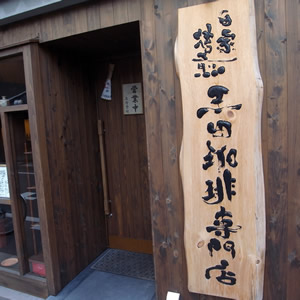 自家焙煎
玉田珈琲専門店
営業中